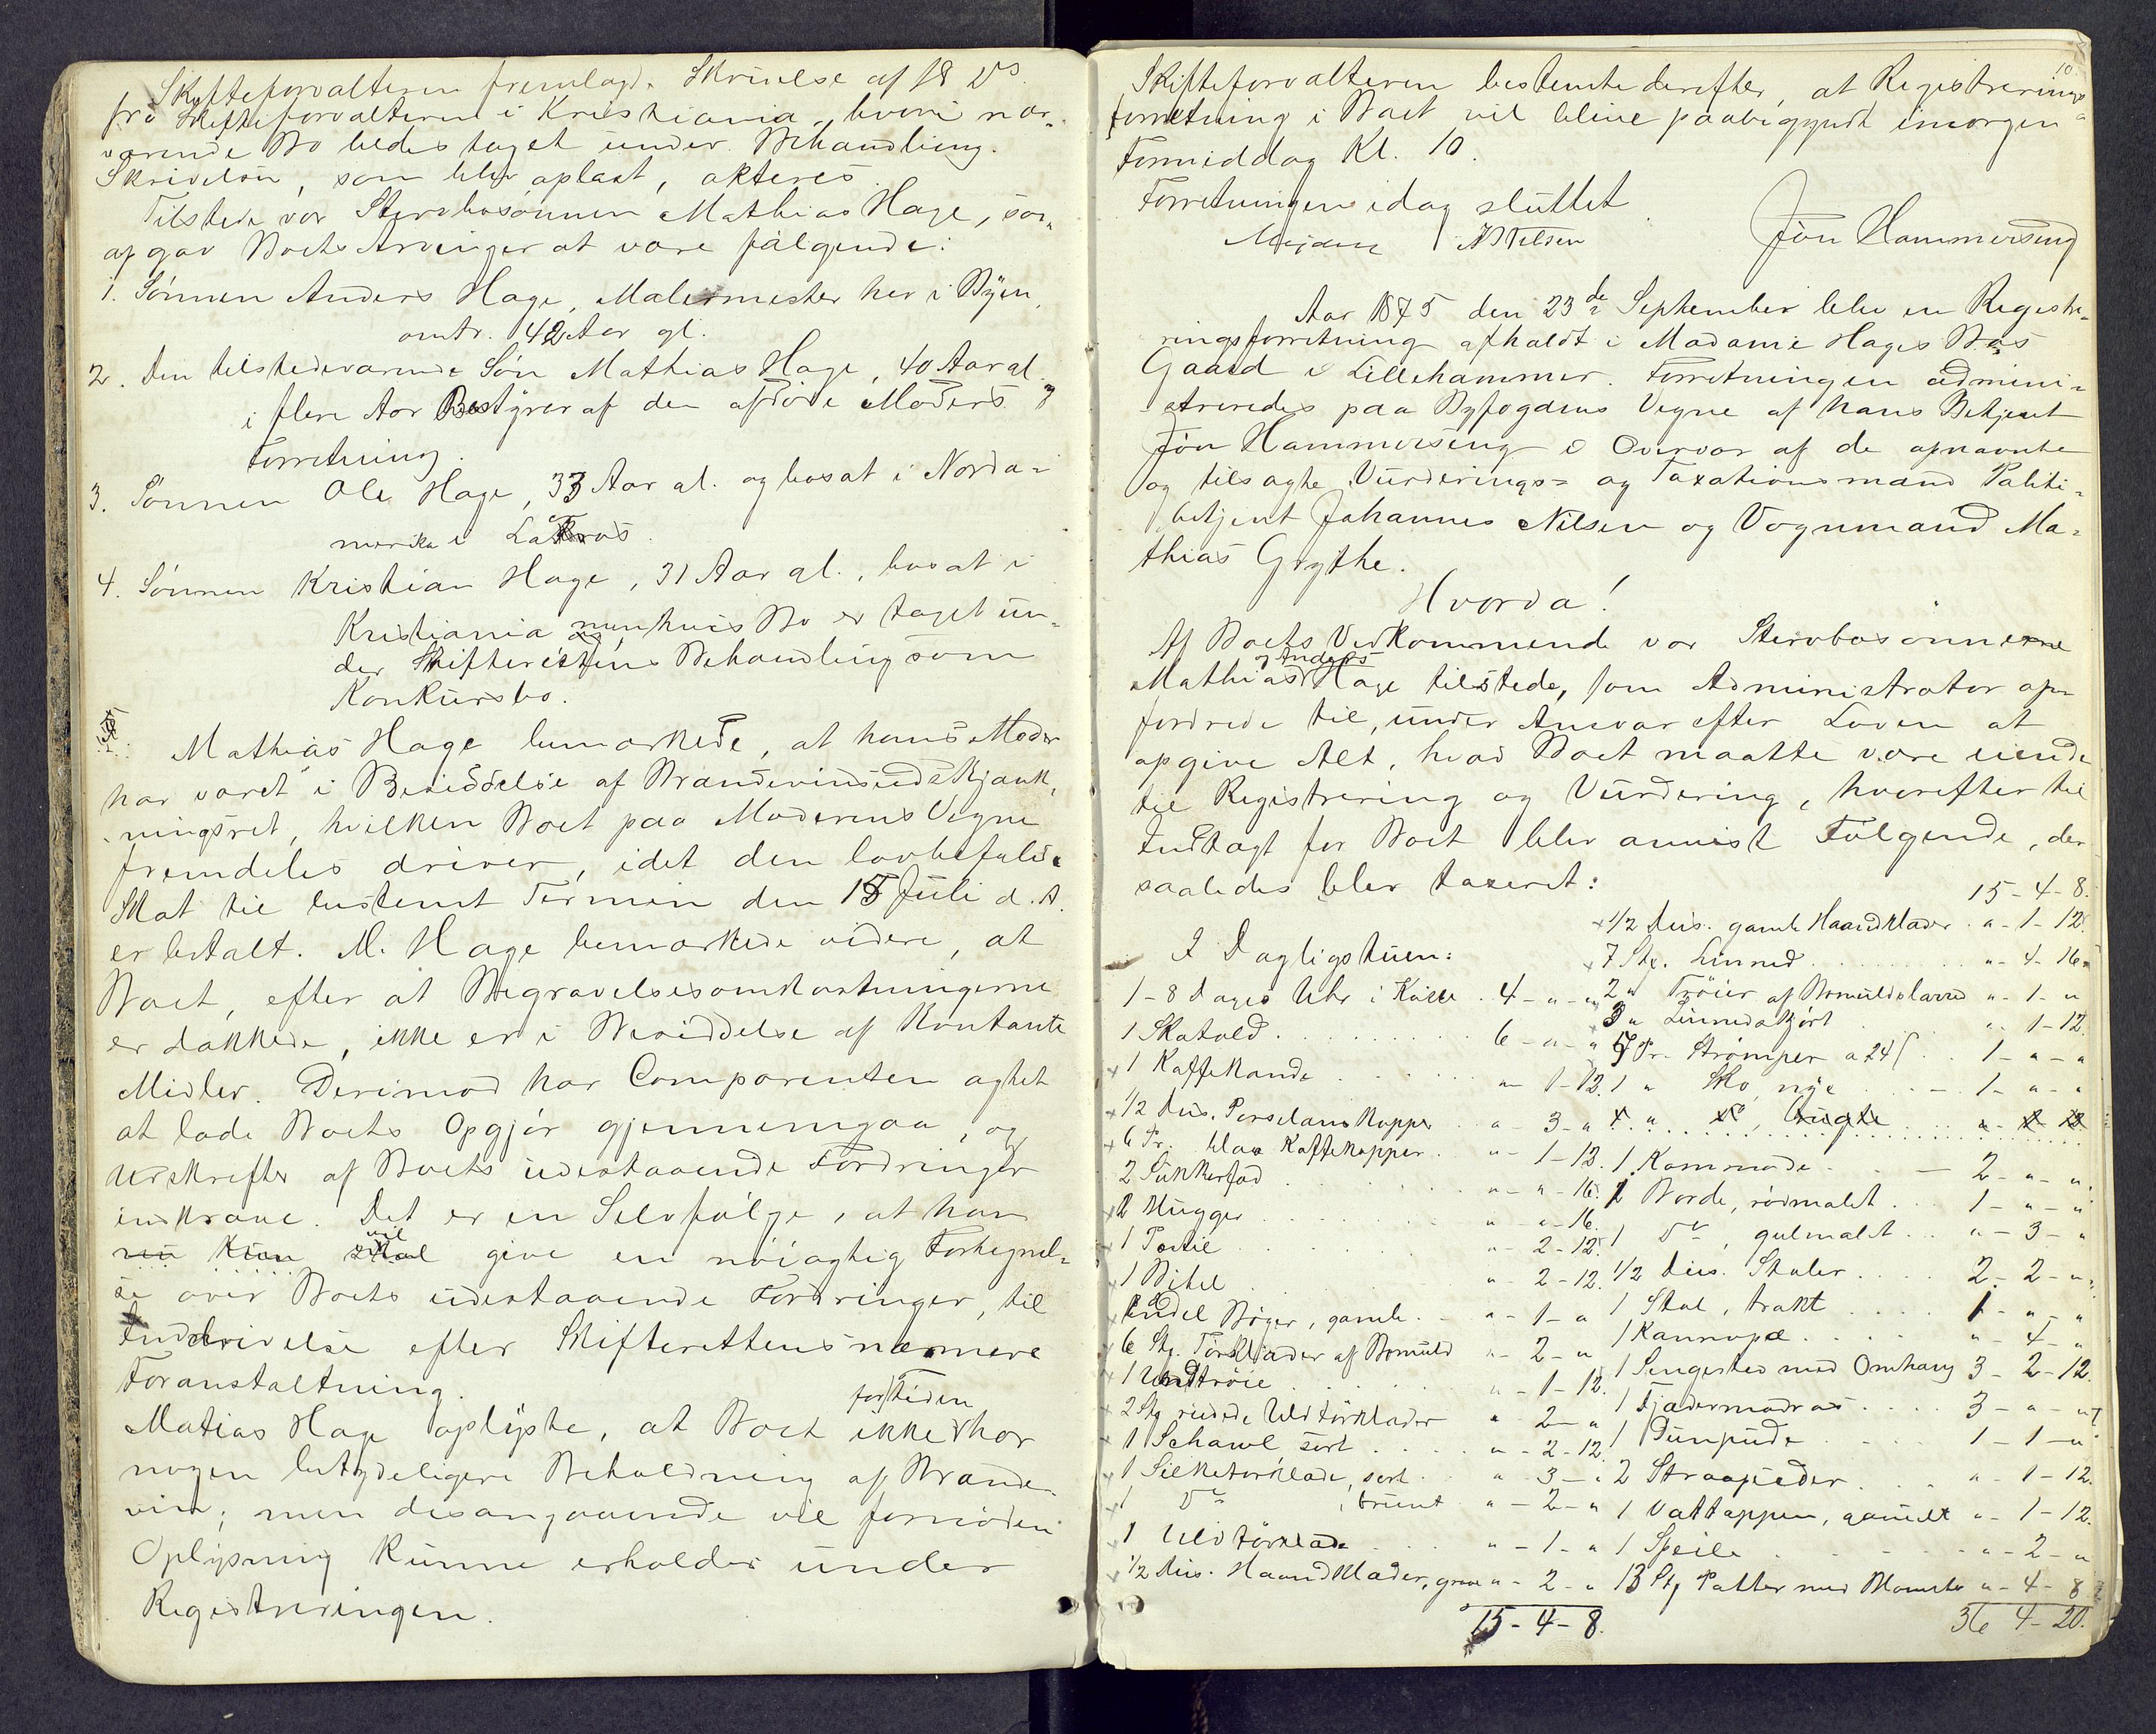 Skifteforvalteren fremlagde Skrivelse af 18 Ds.
fra Skifteforvalteren i Kristiania, hvori nær-
værende Bo bedes taget under Behandling.
Skrivelsen, som blev oplæst, akteres.
Tilstede var Stervbosønnen Mathias Hage, som
opgav Boets Arvinger at være følgende:
1. Sønnen Anders Hage, Malermester her i Byen,
omtr. 42 Aar gl.
2. Den tilstedeværende Søn Mathias Hage, 40 Aar gl.
i flere Aar Bestyrer af den afdøde Moders
Forretning.
3. Sønnen Ole Hage, 33 Aar gl. og bosat i Norda-
merika i
4. Sønnen Kristian Hage, 31 Aar gl., bosat i
Kristiania men hvis Bo er taget un-
der Skifterettens Behandling som
Konkursbo.
Mathias Hage bemærkede, at hans Moder
har været i Besiddelse af Brændevinsudskjænk-
ningsret, hvilken Boet paa Moderens Vegne
fremdeles driver, idet den lovbefalede
Skat til bestemt Termin den 15 Juli d. A.
er betalt. M. Hage bemærkede videre, at
Boet, efter at Begravelsesomkostningerne
er dækkede, ikke er i Besiddelse af Kontante
Midler. Derimod har Comparenten agtet
at lade Boets Opgjør gjennemgaa, og
Udskrifter af Boets udestaaende Fordringer
indkræve. Det er en Selvfølge, at han
vil
kun skal give en nøiagtig Fortegnel-
se over Boets udestaaende Fordringer, til
Inddrivelse efter Skifterettens nærmere
Foranstaltning.
for Tiden
Matias Hage oplyste, at Boet ikke har
nogen betydeligere Beholdning af Brænde-
vin; men desangaaende vil fornøden
Oplysning kunne erholdes under
Registreringen.
10.
Skifteforvalteren bestemte derefter, at Registrerings-
forretning i Boet vil blive paabegyndt imorgen
Formiddag Kl. 10.
Forretningen idag sluttet
Nilsen Jøn Hammerseng
Aar 1875 den 23de September blev en Registre-
ringsforretning afholdt i Madame Hages Bos
Gaard i Lillehammer. Forretningen admini-
streredes paa Byfogdens Vegne af hans Betjent
Jøn Hammerseng i Overvær af de opnævnte
og tilsagte Vurderings- og Taxationsmænd Politi-
betjent Johannes Nilsen og Vognmand Ma-
thias Grythe.
Hvorda!
Af Boets Vedkommende var Stervbosønnerne
og Anders
Mathias Hage tilstede, som Administrator op-
fordrede til, under Ansvar efter Loven at
opgive Alt, hvad Boet maatte være eiende
til Registrering og Vurdering, hvorefter til
Indtægt for Boet blev anvist Følgende, der
saaledes blev taxeret:
I Dagligstuen:
1 - 8 Dages Uhr i Kasse . 4 - " - "
1 Skatold . . . 6 - " - "
1 Kaffekande . . . " - 1 - 12.
1/2 Dus. Porselænskopper " - 3 - "
6 Pr. blaa Kaffekopper . " - 1 - 12.
2 Sukkerfad . . . " - " - 16.
2 Mugger . . . " - " - 16.
1 " - 2 - 12.
1 Bibel . . . " - 2 - 12.
Endel Bøger, gamle . " - 1 - "
6 Stk. Tørklæder af Bomuld " - 2 - "
1 Uldtrøie . . . " - 1 - 12.
2 Stk rudede Uldtørklæder " - 2 - "
1 Schawl sort . . . " - 2 - 12.
1 Silketørklæde, sort . . " - 3 - "
1 Do , brunt " - 2 - "
1 Uldtørklæde . . . " - 1 - "
1/2 Dus. Haandklæder, grove " - 2 - "
15 - 4 - 8.
15 - 4 - 8.
1/2 Dus. gamle Haandklæder . " - 1 - 12.
7 Stk. Linned . . . " - 4 - 16
2 " Trøier af Bomuldslærred " - 1 - "
3 " Linnedskjørt " - 1 - 12.
7 Pr. Strømper a 24 ß . . 1 - " - "
1 " Sko, nye . . . 1 - " - "
4 " Do, brugte " - 2 - 12
1 Kommode . . . 2 - " - "
2 Borde, rødmalet . . . 1 - " - "
1 Do, gulmalt . . . " - 3 - "
1/2 Dus. Stoler . . . . 2 - 2 - "
1 Stol, trækt . . . . . 1 - " - "
1 Kannapé . . . . " - 4 - "
1 Sengested med Omhæng 3 - 2 - 12.
1 Fjædermadras . . . . 3 - " - "
1 Dunpude . . . . 1 - 1 - "
2 Straapuder . . . . " - 1 - 12.
1 Vattæppen, gamelt " - 1 - 12.
1 Speile . . . . " - 2 - "
13 Stk Potter med Blomster " - 4 - 8
36 4 - 20.